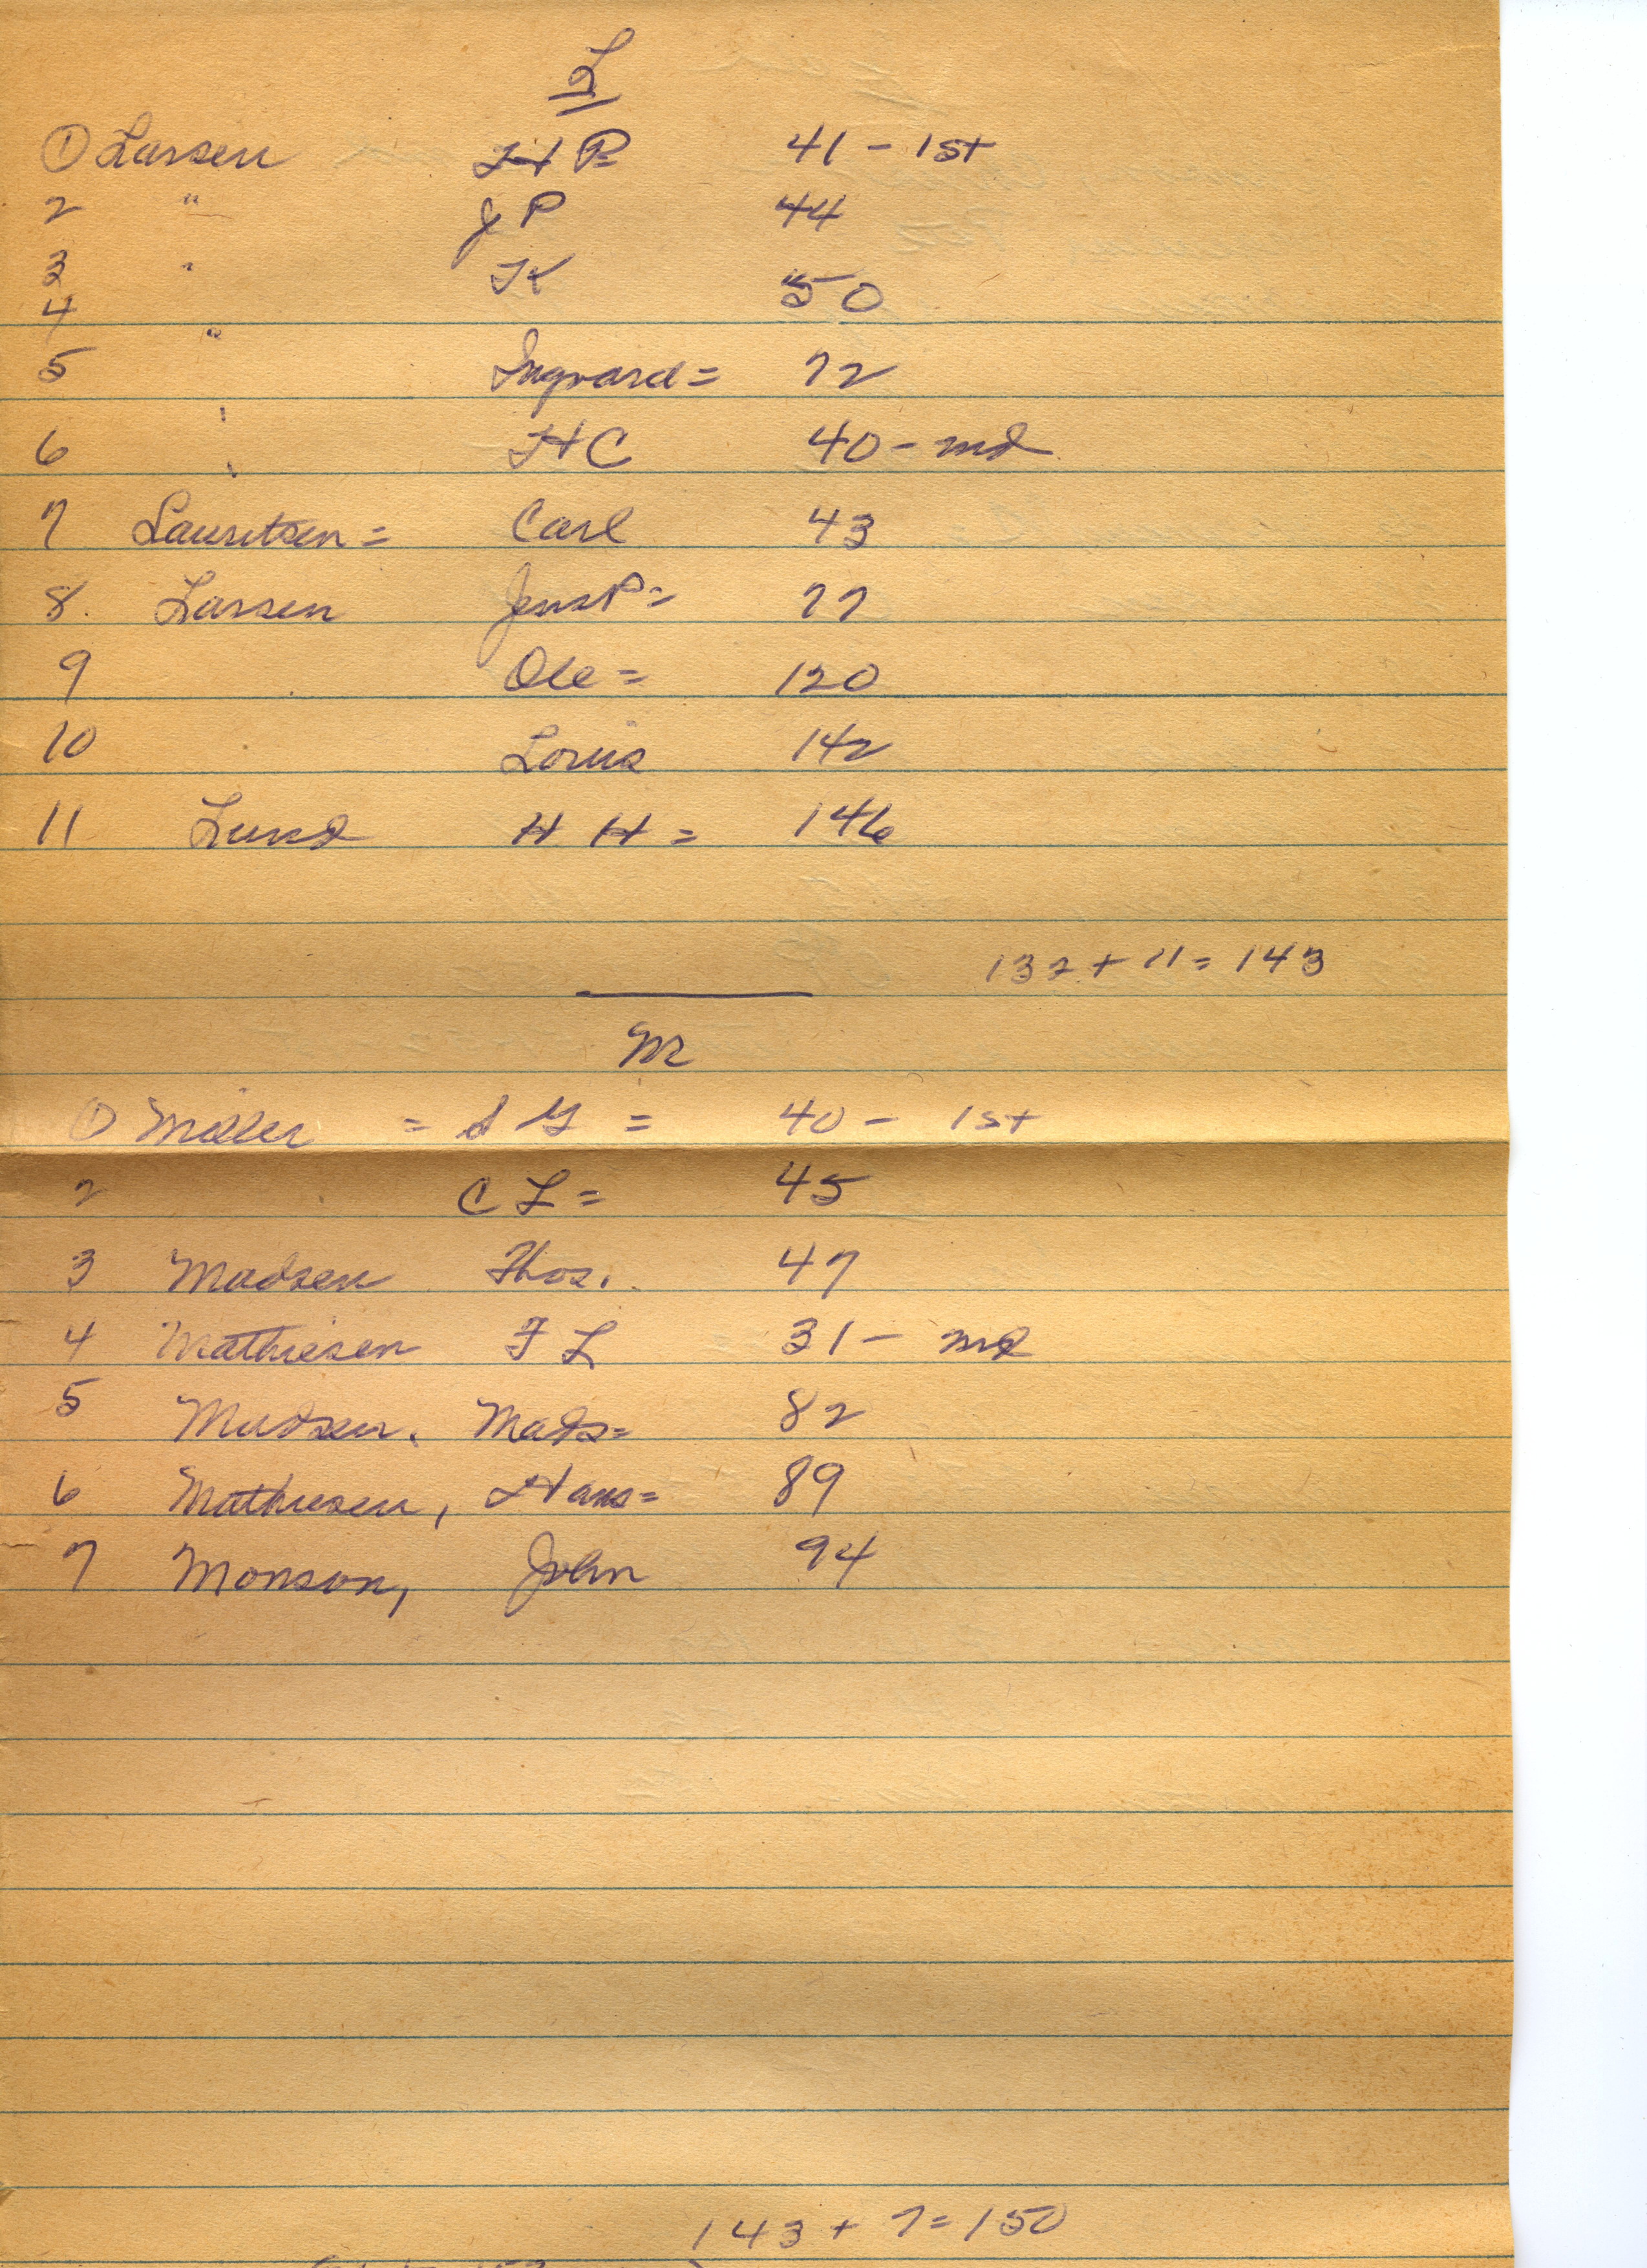 L
① Larsen H P= 41 - 1st
2 " J P 44
3 " K 50
4 "
5 Ingvard = 72
6 " H C 40 - md
7 Lauritsen = Carl 43
8. Larsen Jens P = 77
9 Ole = 120
10 Louis 142
11 Lund H H = 146
132 + 11 = 143
M
① Miller = S G = 40 - 1st
2 C L = 45
3 Madsen Thos. 47
4 Mathiesen F L 31 - md
5 Madsen. Mads= 82
6 Mathiesen, Hans= 89
7 Monson, John 94
143 + 7 = 150